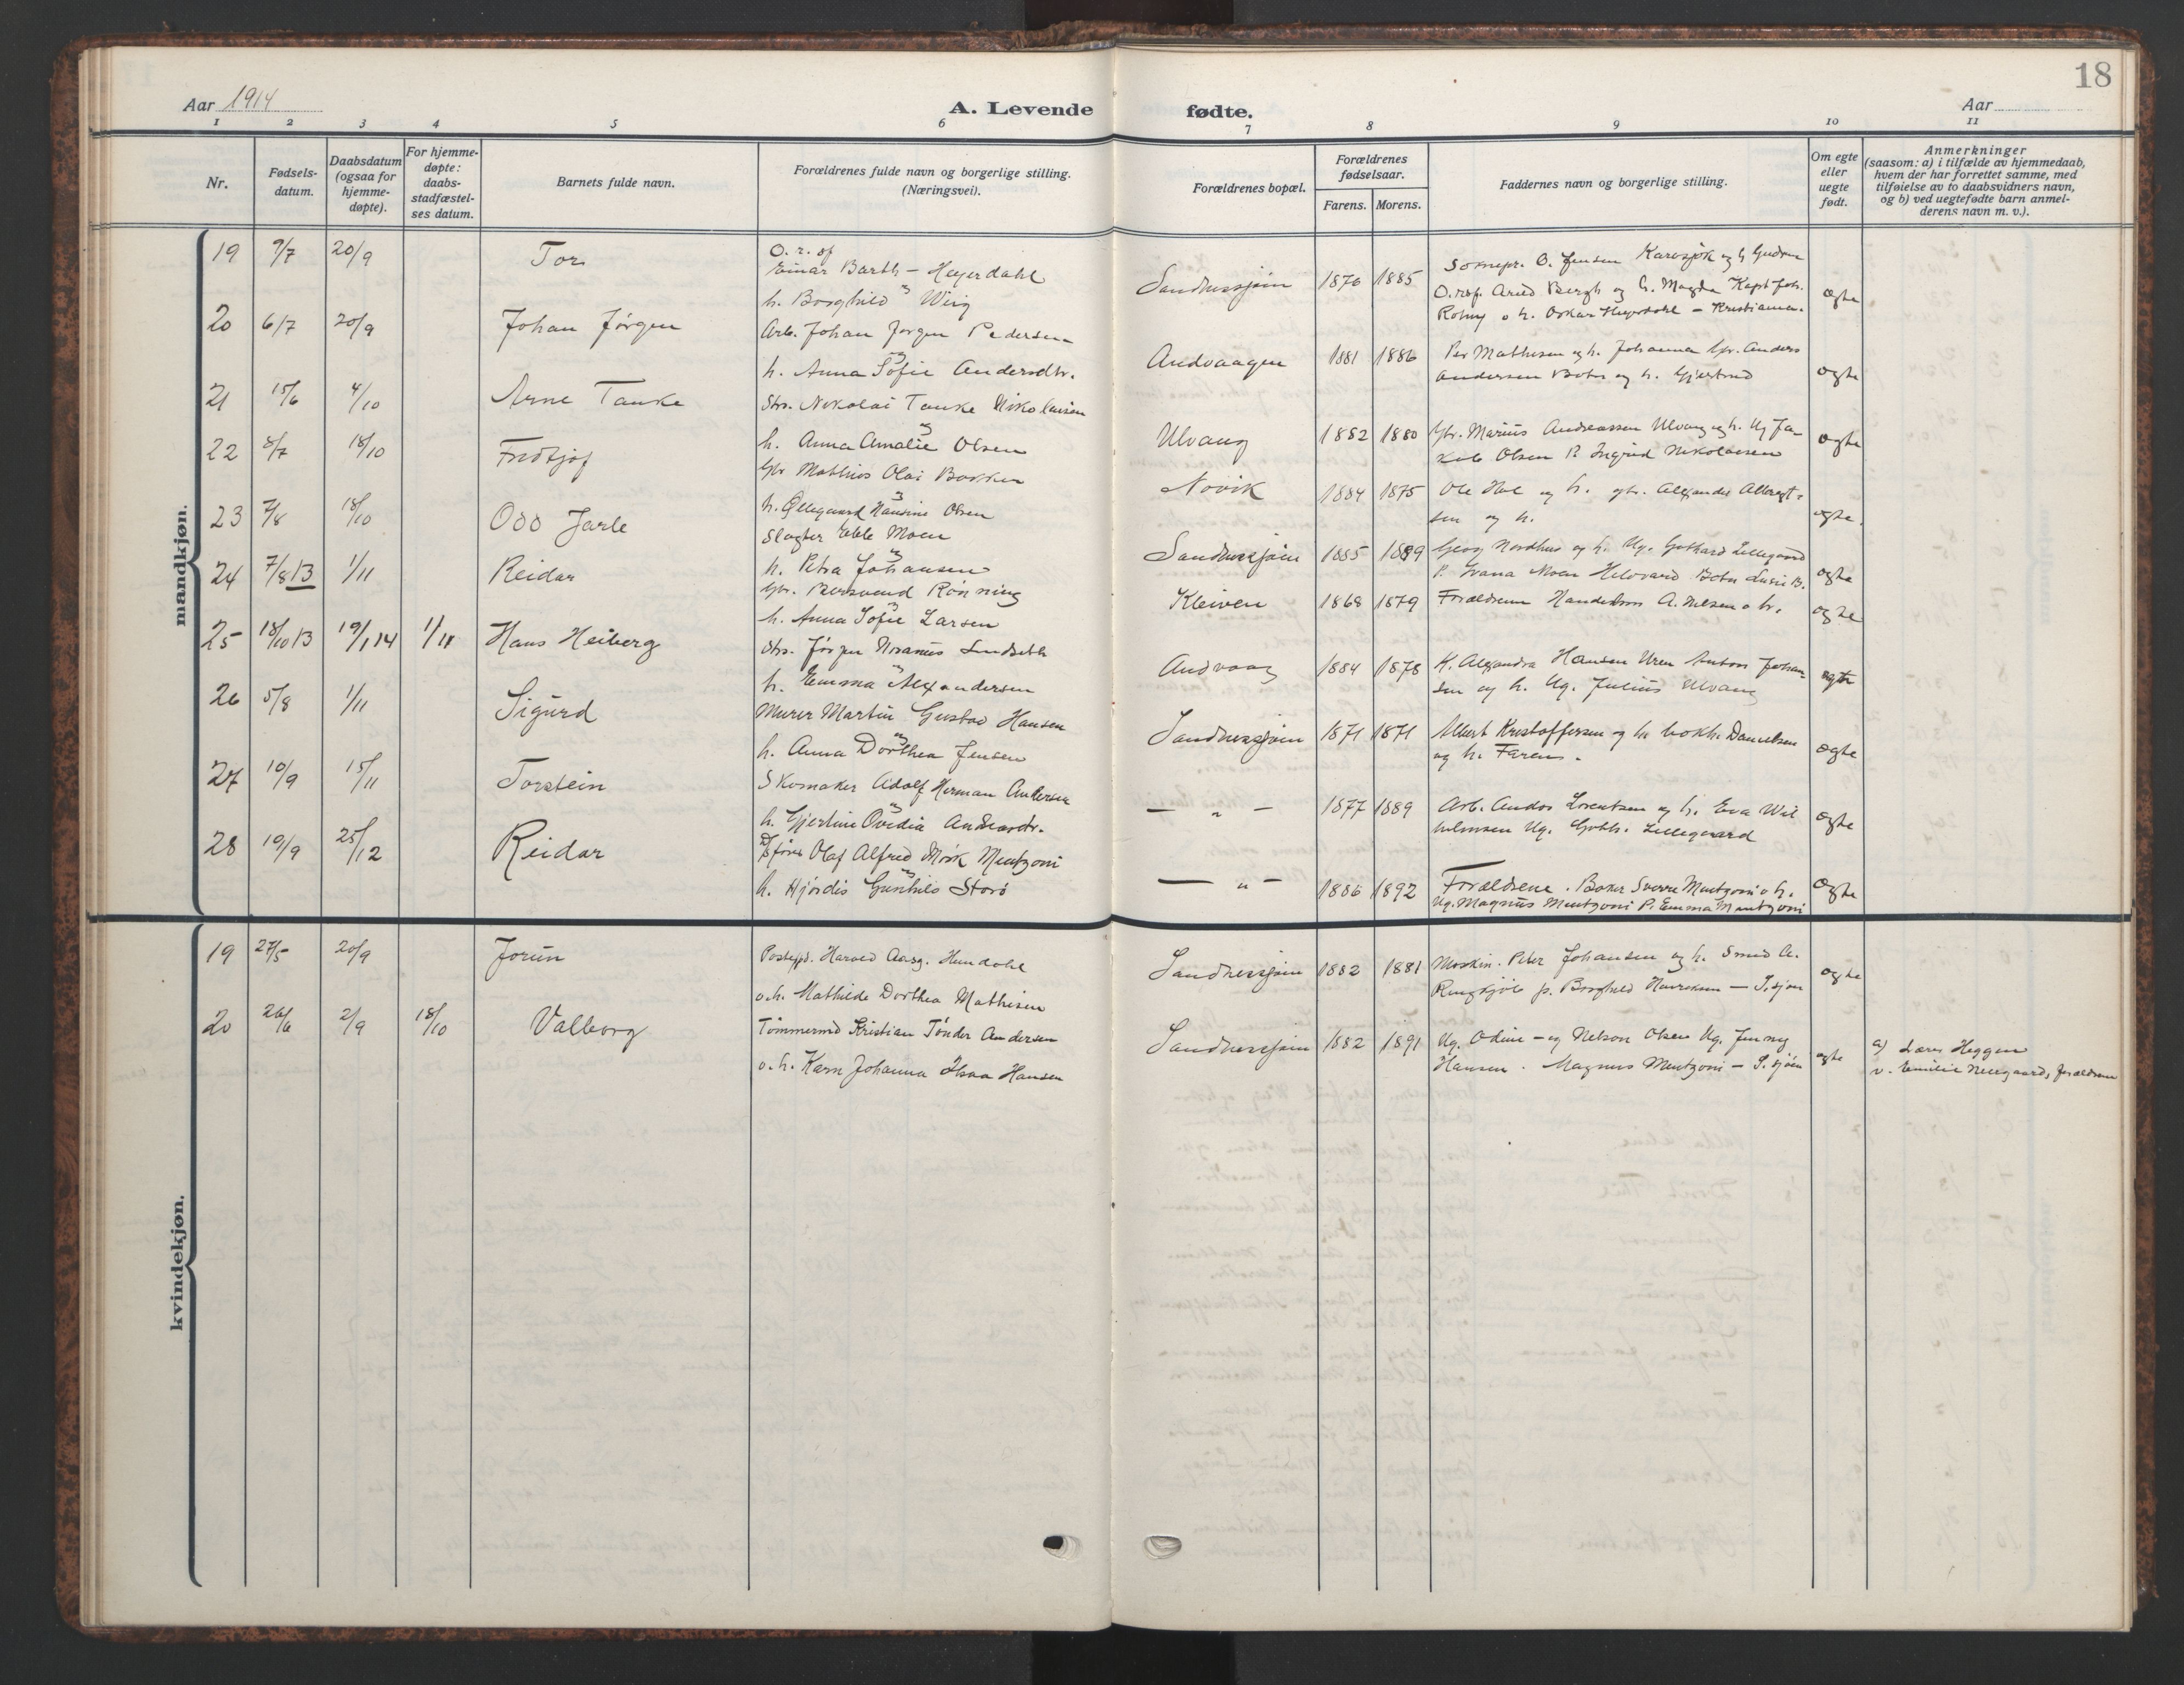 Aar 1914
A. Levende fødte.
Aar
18
1 2 3 4 5 6 7 8 9 10 11
Nr.
Fødsels-
datum.
Daabsdatum
(ogsaa for
hjemme-
døpte).
For hjemme-
døpte:
daabs-
stadfæstel-
ses datum.
Barnets fulde navn.
Forældrenes fulde navn og borgerlige stilling.
(Næringsvei).
Forældrenes bopæl.
Forældrenes
fødselsaar.
Farens. Morens.
Faddernes navn og borgerlige stilling.
Om egte
eller
uegte
født.
Anmerkninger
(saasom: a) i tilfælde av hjemmedaab,
hvem der har forrettet samme, med
tilføielse av to daabsvidners navn,
og b) ved uegtefødte barn anmel-
derens navn m. v.).
mandkjøn.
19 9/7 20/9 Tor
O. r. sf
Einar Barth - Heyerdahl
h. Borghild Wiig
Sandnessjøen 1876 1885
Sognepr. O. Jensen Karasjok og h Gudrun
O.rsf. Arvid Bergh og h. Magda Kapt Joh.
o h. Oskar Heyerdahl - Kristiania.
egte
20 6/7 20/9 Johan Jørgen
Arb. Johan Jørgen Pedersen
h. Anna Sofie Andersdtr.
Andvaagen 1881 1886
Per Mathisen og h. Johanna Gbr. Anders
Andersen Botn og h. Gjertrud
egte
21 15/6 4/10 Arne Tanke
Strs. Nikolai Tanke Nikolaisen
h. Anna Amalie Olsen
Ulvang 1882 1880
Gbr. Marius Andreassen Ulvang og h. Ug Ja-
kob Olsen P. Ingrid Nikolaisen
egte
22 8/7 18/10 Fridtjof
Gbr Mathias Olai Bakken
h. Ellegaard Hansine Olsen
Novik 1884 1875
Ole Hol og h. gbr. Alexander Albregt-
sen og h.
egte.
23 7/8 18/10 Odd Jarle
Slagter Ebbe Moen
h. Petra Johansen
Sandnessjøen 1885 1889
Georg Nordhus og h. Ug. Gothard Lillegaard
P. Ivana Moen Hildvard Botn B.
egte
24 7/8 13 1/11 Reidar
Gbr. Bersvend Rønning
h. Anna Sofie Larsen
Kleiven 1868 1879
Forældrene Handelsm A. Nilsen o h.
egte
25 18/10 13 19/1 14 1/11 Hans Heiberg
strs. Jørgen Lindseth
h. Emma Alexandersen
Andvaag 1884 1878
K. Alexandra Hansen Uren Anton Johan-
sen og h. Ug. Julius Ulvang
egte
26 5/8 1/11 Sigurd
Murer Martin Gustav Hansen
h. Anna Dorthea Jensen
Sandnessjøen 1871 1871
Albert Kristoffersen og h. bokh. Danielsen
og h. Faren.
egte
27 10/9 15/11 Torstein
Skomaker Adolf Herman Andersen
h. Gjertine Ovedia Andreasdtr.
— " — 1877 1889
Arb. Andor Lorentsen og h. Eva Wil
helmsen Ug. Gotth. Lillegaard
egte
28 19/9 25/12 Reidar
Dfører Olaf Alfred Mørk Mentzoni
h. Hjørdis Gunhild Storø
— " — 1886 1892
Forældrene. Baker Sverre Mentzoni o h.
Ug. Magnus Mentzoni P. Emma Mentzoni
egte
kvindekjøn.
19 27/5 20/9 Jorun
Postexpd. Harald Aasg. Hundahl
o.h. Mathilde Dorthea Mathisen
Sandnessjøen 1882 1881
Maskin. Peter Johansen og h. Smed A.
Ringkjøb p. Borghild Henriksen — S.sjøen
egte
20 26/6 2/9 18/10 Valborg
Tømmermd Kristian Tønder Andersen
o.h. Karn Johanna Hansen
Sandnessjøen 1882 1891
Ug. Odin - og Nelson Olsen Ug. Jenny
Hansen. Magnus Mentzoni — S.sjøen
egte
a) Lærer Heggen
v. Emilie Neergaard, forældrene